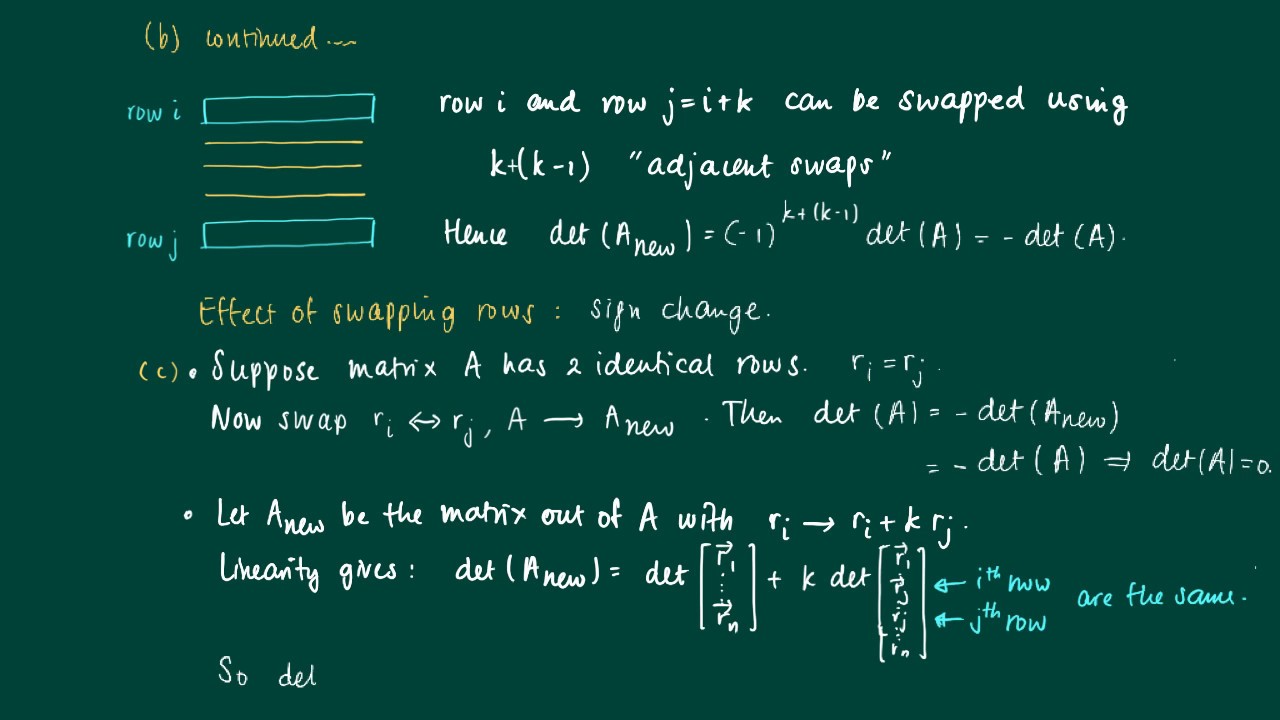 (b) continued ....
row i
row i and row j=i+k can be swapped using
k+(k-1) "adjacent swaps"
row j
Hence det (A_new) = (-1)^{k+(k-1)} det (A) = - det (A).
Effect of swapping rows : sign change.
(c) • Suppose matrix A has 2 identical rows. r_i = r_j.
Now swap r_i ↔ r_j, A → A_new. Then det (A) = - det (A_new)
= - det (A) ⇒ det(A)=0.
• Let A_new be the matrix out of A with r_i → r_i + k r_j.
Linearity gives: det (A_new) = det [r⃗_1 ⋮ r⃗_n] + k det [r⃗_1 r⃗_j r_j ⋮ r_n] ← i^th row ← j^th row are the same.
So del